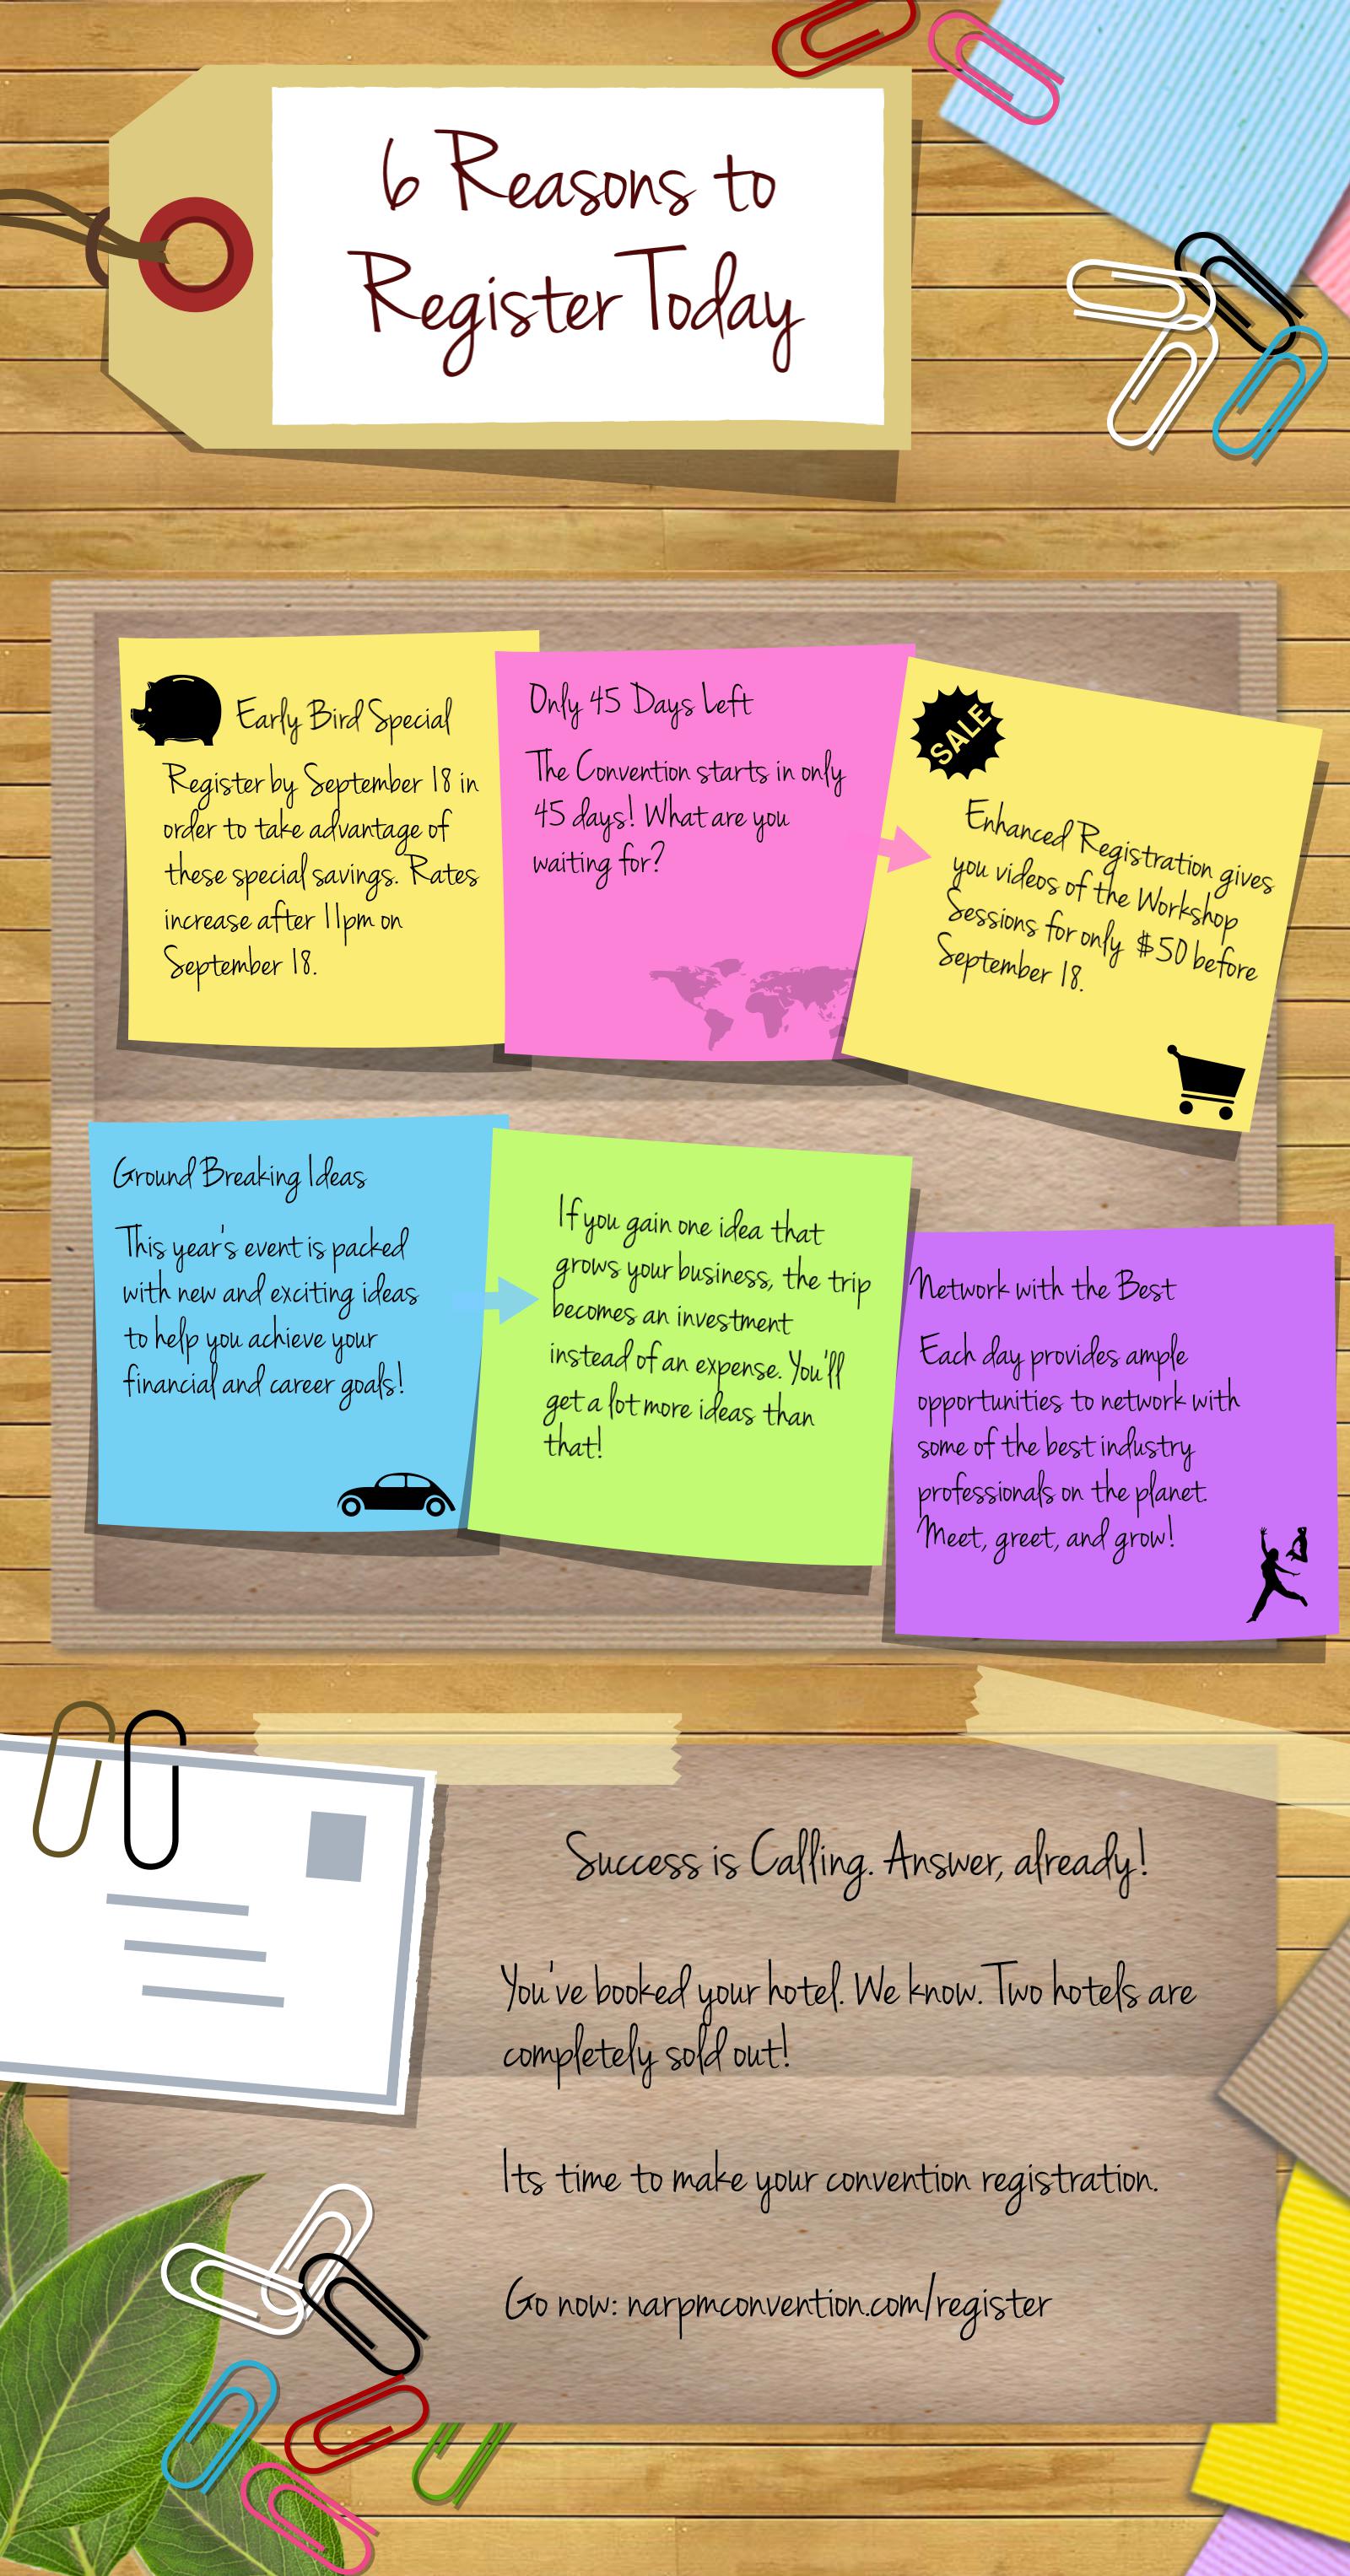 6 Reasons to
Register Today
Early Bird Special
Register by September 18 in
order to take advantage of
these special savings. Rates
increase after 11pm on
September 18.
Only 45 Days Left
The Convention starts in only
45 days! What are you
waiting for?
SALE
Enhanced Registration gives
you videos of the Workshop
Sessions for only $50 before
September 18.
Ground Breaking Ideas
This year's event is packed
with new and exciting ideas
to help you achieve your
financial and career goals!
If you gain one idea that
grows your business, the trip
becomes an investment
instead of an expense. You'll
get a lot more ideas than
that!
Network with the Best
Each day provides ample
opportunities to network with
some of the best industry
professionals on the planet.
Meet, greet, and grow!
Success is Calling. Answer, already!
You've booked your hotel. We know. Two hotels are
completely sold out!
Its time to make your convention registration.
Go now: narpmconvention.com/register